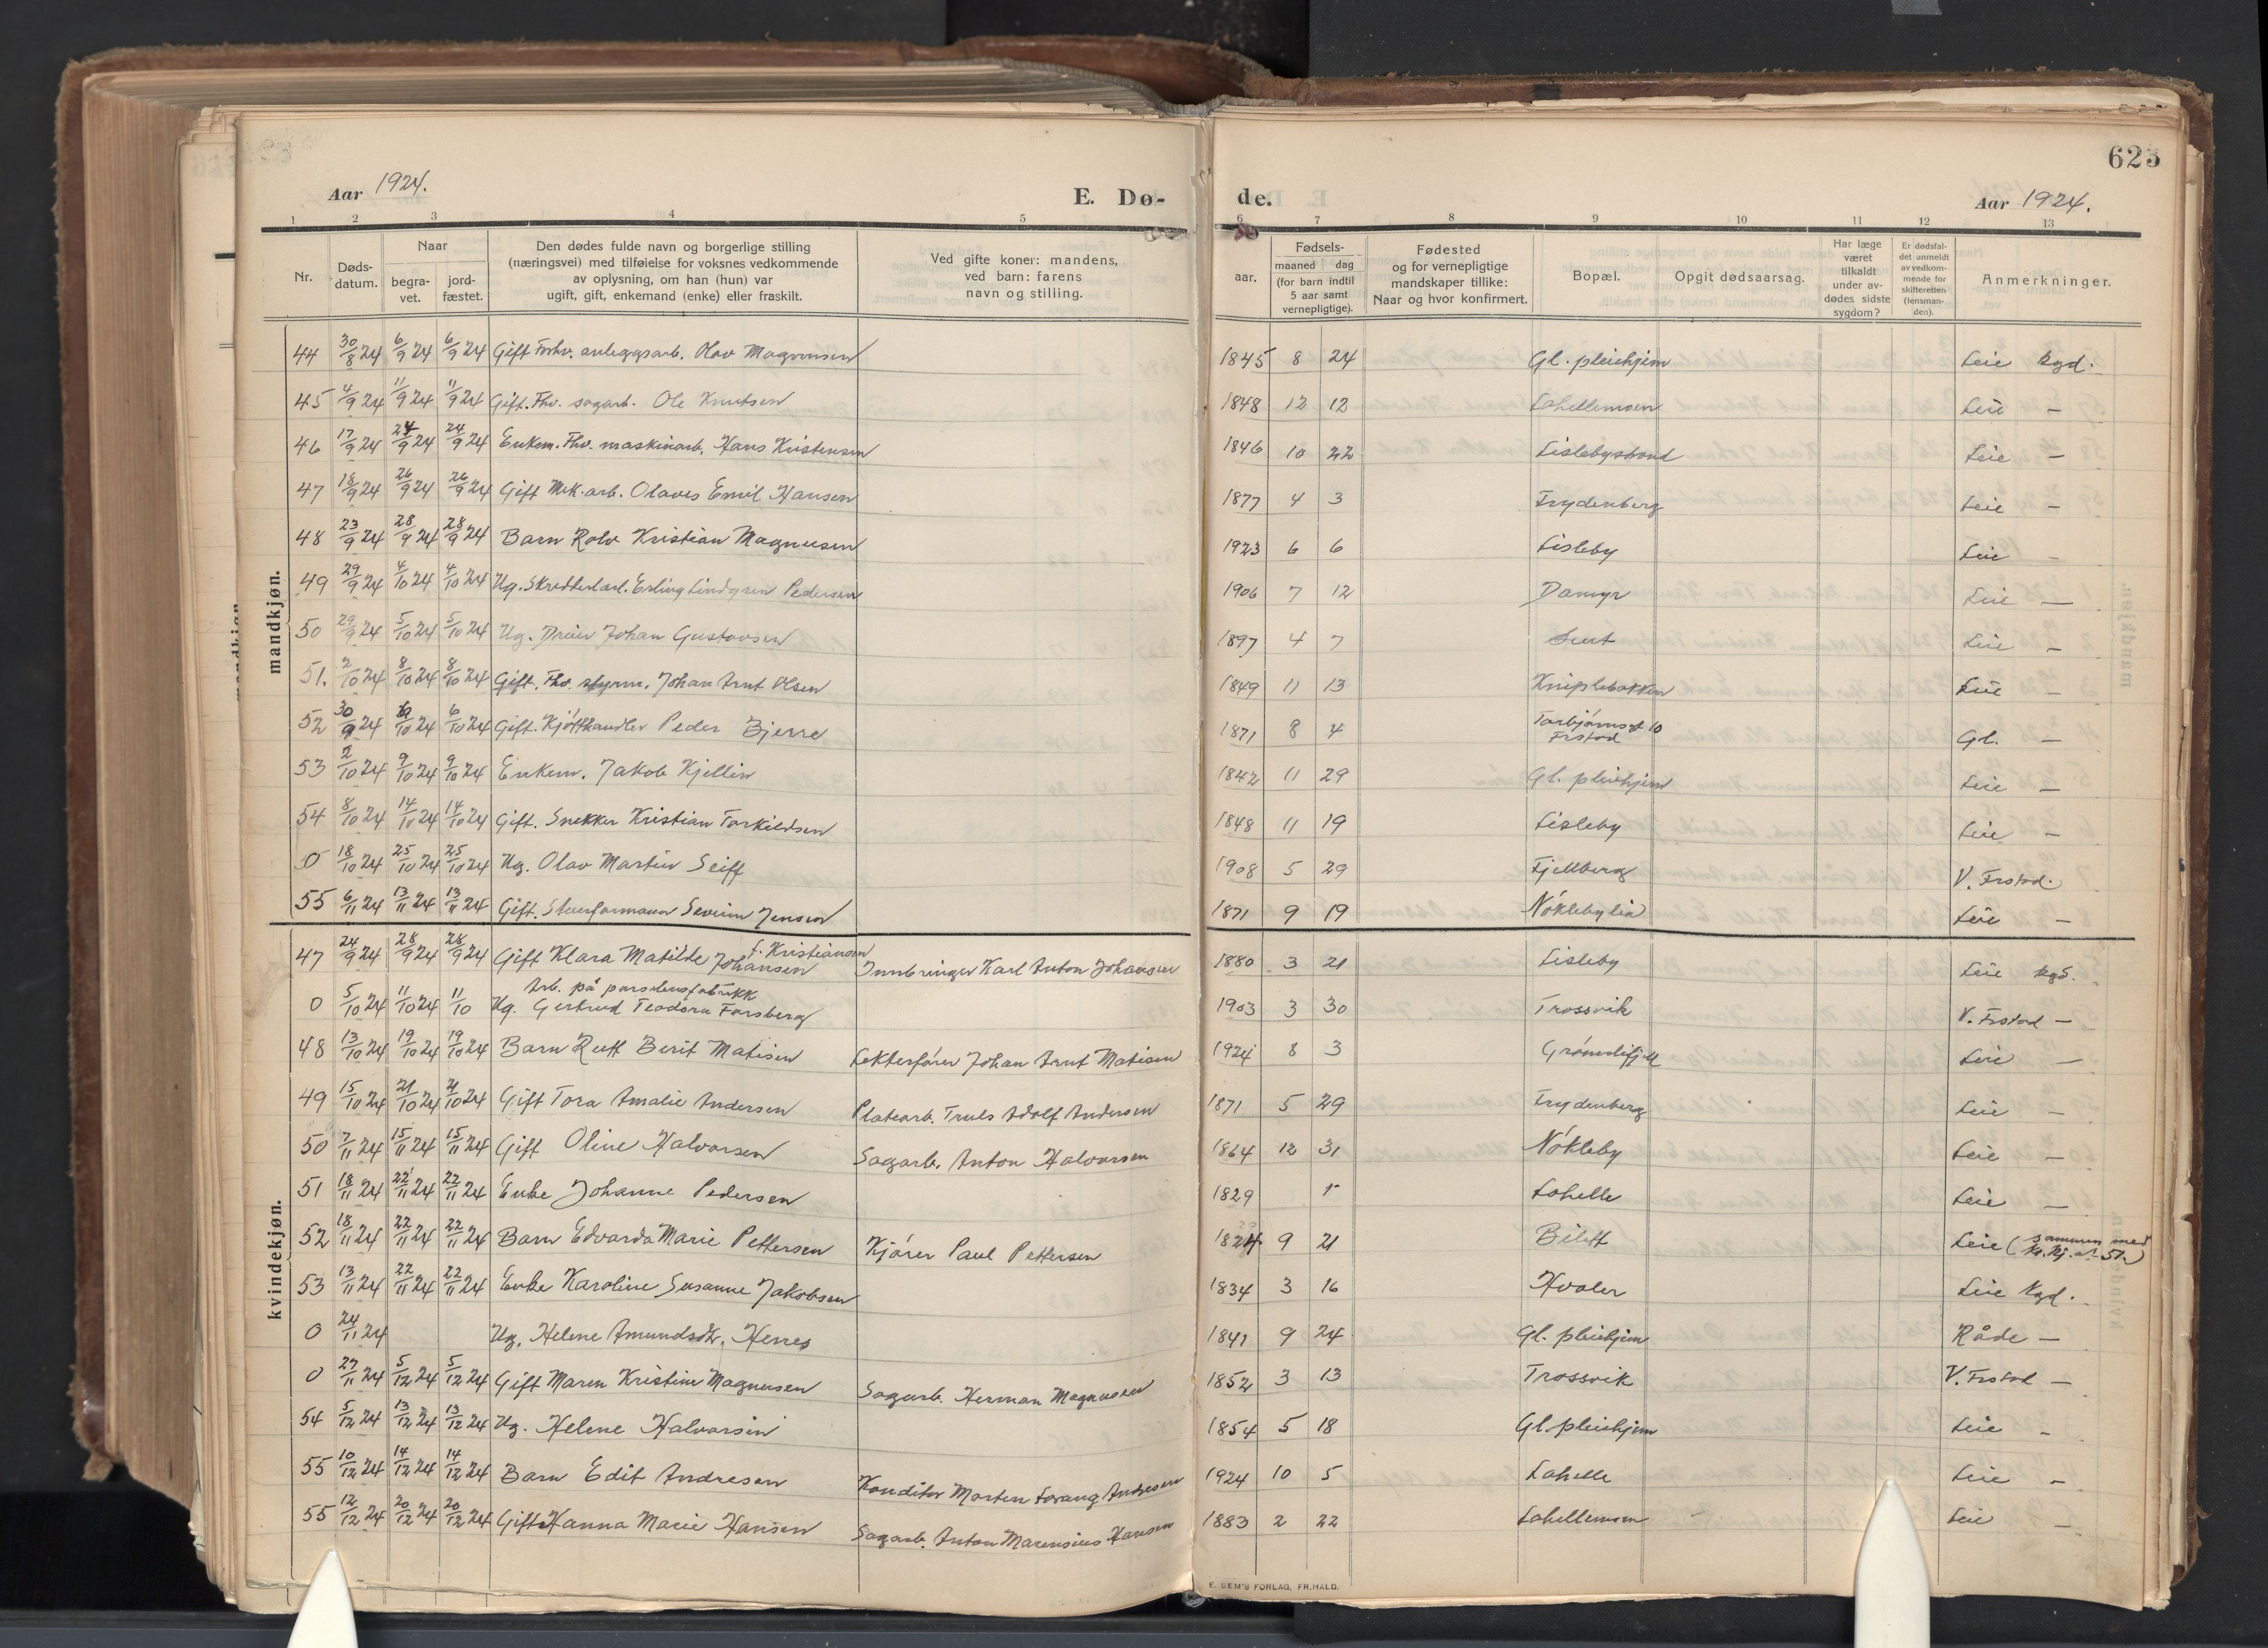 623
Aar 1924.
E. Dø-
de.
Aar 1924.
1 2 3 4 5 6 7 8 9 10 11 12 13
Nr.
Døds-
datum.
Naar
begra-
vet.
jord-
fæstet.
Den dødes fulde navn og borgerlige stilling
(næringsvei) med tilføielse for voksnes vedkommende
av oplysning, om han (hun) var
ugift, gift, enkemand (enke) eller fraskilt.
Ved gifte koner: mandens,
ved barn: farens
navn og stilling.
Fødsels-
aar.
maaned
dag
(for barn indtil
5 aar samt
vernepligtige).
Fødested
og for vernepligtige
mandskaper tillike:
Naar og hvor konfirmert.
Bopæl.
Opgit dødsaarsag.
Har læge
været
tilkaldt
under av-
dødes sidste
sygdom?
Er dødsfal-
det anmeldt
av vedkom-
mende for
skifteretten
(lensman-
den).
Anmerkninger.
mandkjøn.
44 30/8 24 6/9 24 6/9 24 Gift Forhv. anleggsarb. Olav Magnussen 1845 8 24 Gl. pleiehjem Leie kgd.
45 4/9 24 11/9 24 11/9 24 Gift. Fhv. sagarb. Ole Knutsen 1848 12 12 Lahellemoen Leie —
46 17/9 24 24/9 24 24/9 24 Enkem. Fhv. maskinarb. Hans Kristensen 1846 10 22 Lislebystrand Leie —
47 18/9 24 26/9 24 26/9 24 Gift Mek. arb. Olaves Emil Hansen 1877 4 3 Frydenberg Leie —
48 23/9 24 28/9 24 28/9 24 Barn Rolv Kristian Magnusen 1923 6 6 Lisleby Leie —
49 29/9 24 4/10 24 4/10 24 Ug. Erling Lindgren Pedersen 1906 7 12 Damyr Leie —
50 29/9 24 5/10 24 5/10 24 Ug. Johan Gustavsen 1897 4 7 Leie —
51. 2/10 24 8/10 24 8/10 24 Gift. Fhv. styrm. Johan Arnt Olsen 1849 11 13 Kniplebakken Leie —
52 30/9 24 6/10 24 6/10 24 Gift. Kjøtthandler Peder Bjerre 1871 8 4 Torbjørns gt 10 Frstad Gl. —
53 2/10 24 9/10 24 9/10 24 Enkem. Jakob Kjellin 1842 11 29 Gl. pleiehjem Leie —
54 8/10 24 14/10 24 14/10 24 Gift. Snekker Kristian Torkildsen 1848 11 19 Lisleby Leie —
0 18/10 24 25/10 24 25/10 24 Ug. Olav Martin Seiff 1908 5 29 Fjellberg V. Frstad.
55 6/11 24 13/11 24 13/11 24 Gift. Stuerformann Severin Jensen 1871 9 19 Nøklebylia Leie —
kvindekjøn.
47 24/9 24 28/9 24 28/9 24 Gift Klara Matilde Johansen f. Kristiansen Innbringer Karl Anton Johansen 1880 3 21 Lisleby Leie kgd.
0 5/10 24 11/10 24 11/10 Arb. på porselensfabrikk
Ug. Gertrud Teodora Forsberg 1903 3 30 Trossvik V. Frstad —
48 13/10 24 19/10 24 19/10 24 Barn Rutt Berit Matisen Lekterfører Johan Arnt Matisen 1924 8 3 Grønnlifjell Leie —
49 15/10 24 21/10 24 21/10 24 Gift Tora Amalie Andersen Platearb. Truls Adolf Andersen 1871 5 29 Frydenberg Leie —
50 7/11 24 15/11 24 15/11 24 Gift Oline Halvorsen Sagarb. Anton Halvorsen 1864 12 31 Nøkleby Leie —
51 18/11 24 22/11 24 22/11 24 Enke Johanne Pedersen 1829 Lahelle Leie —
52 18/11 24 22/11 24 22/11 24 Barn Edvarda Marie Pettersen Kjører Paul Pettersen 1924 9 21 Bilett Leie (sammen med
kv. kj. nr 51.)
53 13/11 24 22/11 24 22/11 24 Enke Karoline Susanne Jakobsen 1834 3 16 Hvaler Leie kgd.
0 24/11 24 Ug. Helene Amundsdtr. Herres 1841 9 24 Gl. pleiehjem Råde —
0 27/11 24 5/12 24 5/12 24 Gift Maren Kristine Magnusen Sagarb. Herman Magnusen 1852 3 13 Trossvik V. Frstad —
54 5/12 24 13/12 24 13/12 24 Ug. Helene Halvorsen 1854 5 18 Gl. pleiehjem Leie —
55 10/12 24 14/12 24 14/12 24 Barn Edit Andresen Konditor Morten Andresen 1924 10 5 Lahelle Leie —
55 12/12 24 20/12 24 20/12 24 Gift Hanna Marie Hansen Sagarb. Anton Marensius Hansen 1883 2 22 Lahellemoen Leie —
E. SEM'S FORLAG, FR.HALD.